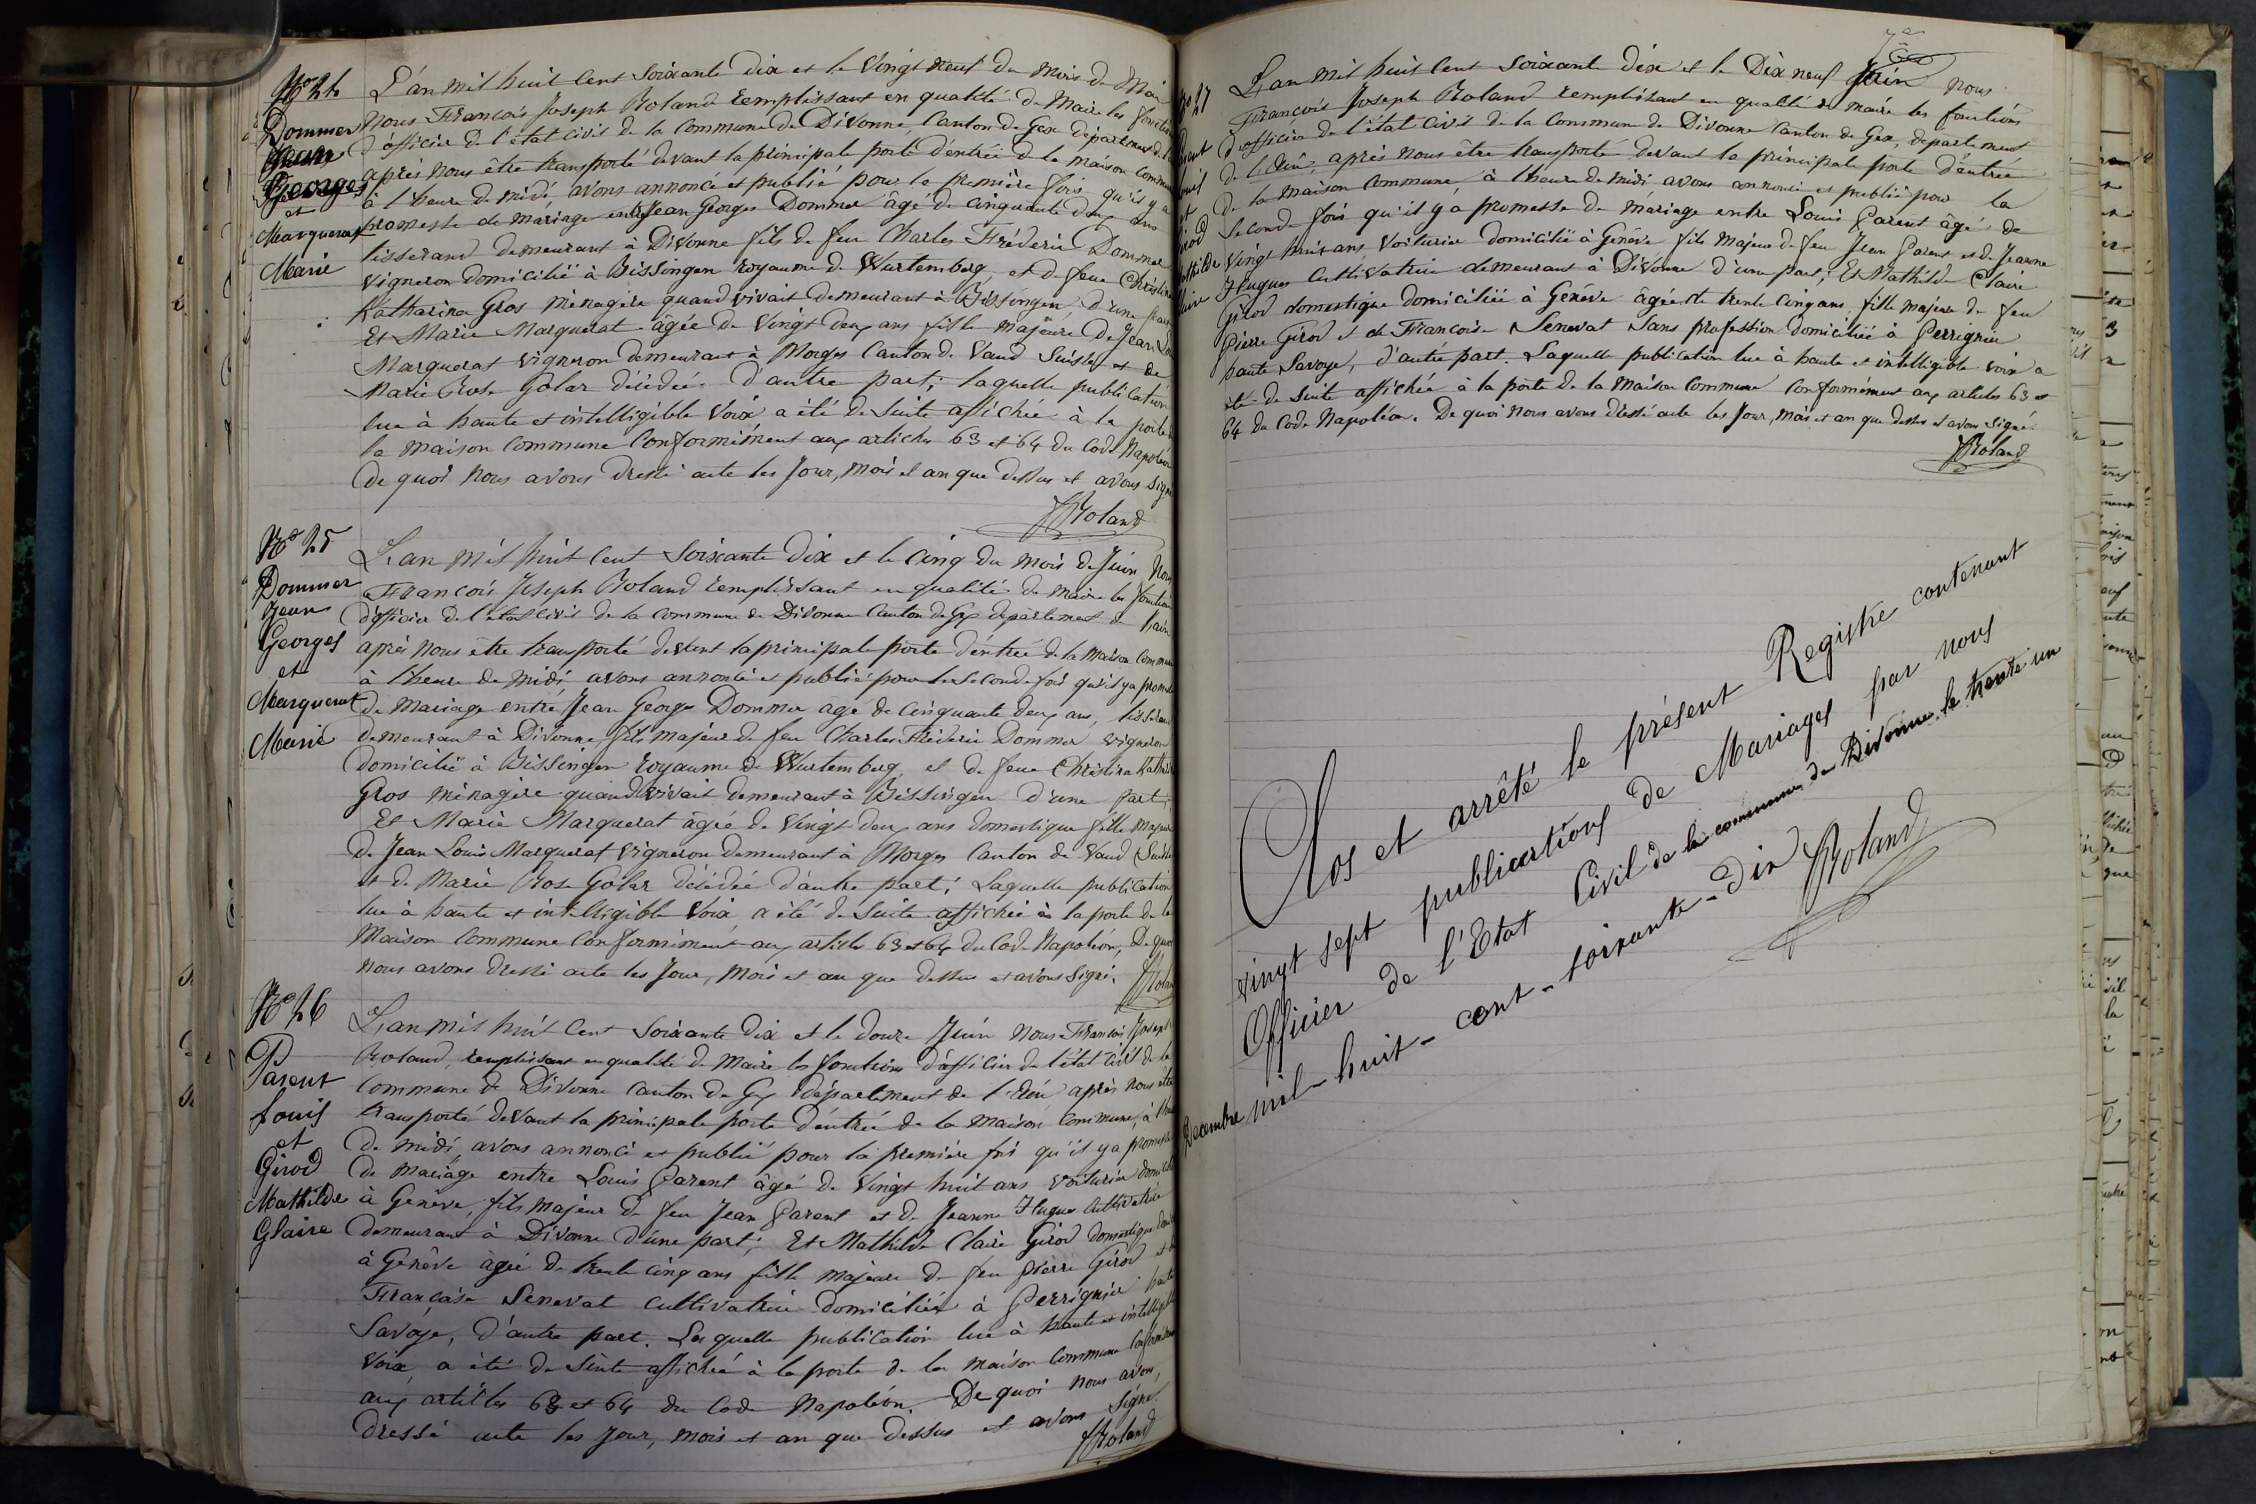 No 24
Dommer
Jean
Georges
et
Marquerat
Marie
L'an mil huit cent soixante dix et le vingt neuf du mois de Mai
nous François Joseph Roland remplissant en qualité de Maire les fonctions
d'officier de l'état civil de la commune de Divonne, Canton de Gex département de
après nous être transporté devant la principale porte d'entrée de la maison commune
à l'heure de midi, avons annoncé et publié pour la première fois qu'il y a
promesse de mariage entre Jean Georges Dommer âgé de cinquante deux ans
tisserand demeurant à Divonne fils de feu Charles Fréderic Dommer
vigneron domicilié à Bissingen royaume de Wurtemberg, et de feue Christina
Katharina Gros ménagère quand vivait demeurant à Bissingen, d'une part
Et Marie Marquerat âgée de vingt deux ans fille majeure de Jean Louis
Marquerat vigneron demeurant à Morges Canton de Vaud Suisse et de
Marie Rose Golar décédée d'autre part; laquelle publication
lue à haute et intelligible voix a été de suite affichée à la porte
la maison commune conformément aux articles 63 et 64 du Code Napoléon
de quoi nous avons dressé acte les jour, mois et an que dessus et avons signé
Roland
No 25
Dommer
Jean
Georges
et
Marquerat
Marie
L'an mil huit cent soixante dix et le cinq du mois de Juin Nous
François Joseph Roland remplissant en qualité de Maire les fonctions
d'officier de l'état civil de la commune de Divonne Canton de Gex département de l'ain
après nous être transporté devant la principale porte d'entrée de la Maison commune
à l'heure de midi avons annoncé et publié pour la seconde fois qu'il y a promesse
de Mariage entre Jean George Dommer âgé de cinquante deux ans, tisserand
demeurant à Divonne, fils majeur de feu Charles Fréderic Dommer vigneron
domicilié à Bissingen royaume de Wurtemberg, et de feue Christina Katharina
Gros ménagère quand vivait demeurant à Bissingen d'une part;
Et Marie Marquerat âgée de vingt deux ans domestique fille majeure
de Jean Louis Marquerat vigneron demeurant à Morges Canton de Vaud (Suisse
et de Marie Rose Golar décédée d'autre part; Laquelle publication
lue à haute et intelligible voix a été de suite affichée à la porte de la
Maison commune conformément aux articles 63 et 64 du Code Napoléon, De quoi
nous avons dressé acte les jour, mois et an que dessus et avons signé.
Roland
No 26
Parent
Louis
et
Girod
Mathilde
Claire
L'an mil huit cent soixante dix et le douze Juin nous François Joseph
Roland, remplissant en qualité de Maire les fonctions d'officier de l'état civil de la
commune de Divonne canton de Gex département de l'Ain après nous être
transporté devant la principale porte d'entrée de la maison commune, à l'heure
de midi, avons annoncé et publié pour la première fois qu'il y a promesse
de mariage entre Louis Parent âgé de vingt huit ans voiturier domicilié
à Genève, fils majeur de feu Jean Parent et de Jeanne Hugues cultivatrice
demeurant à Divonne d'une part; Et Mathilde Claire Girod domestique
à Genève âgée de trente cinq ans fille majeure de feu Pierre Girod et de
Françoise Senevat cultivatrice domiciliée à Perrignier haute
Savoye, d'autre part. Laquelle publication lue à haute et intelligible
voix, a été de suite affichée à la porte de la maison commune conformément
aux articles 63 et 64 du Code Napoléon. De quoi nous avons
dressé acte les jour, mois et an que dessus et avons signé.
Roland
No 27
Parent
Louis
et
Girod
Mathilde
Claire
L'an mil huit cent soixante dix et le Dix neuf Juin nous
François Joseph Roland remplissant en qualité de maire les fonctions
d'officier de l'état civil de la commune de Divonne canton de Gex, département
de l'Ain, après nous être transporté devant la principale porte d'entrée
de la maison commune, à l'heure de midi avons annoncé et publié pour la
seconde fois qu'il y a promesse de mariage entre Louis Parent âgé de
vingt huit ans voiturier domicilié à Genève fils majeur de feu Jean Parent et de Jeanne
Hugues cultivatrice demeurant à Divonne d'une part; Et Mathilde Claire
Girod domestique domiciliée à Genève âgée de trente cinq ans fille majeure de feu
Pierre Girod et de Françoise Senevat sans profession domiciliée à Perrignier
haute Savoye, d'autre part. Laquelle publication lue à haute et intelligible voix a
été de suite affichée à la porte de la maison commune conformément aux articles 63 et
64 du Code Napoléon. De quoi nous avons dressé acte les jour, mois et an que dessus et avons signé.
Roland
Clos et arrêté le présent Registre contenant
vingt sept publications de Mariages par nous
Officier de l'Etat Civil de la commune de Divonne le trente un
Decembre mil-huit-cent-soixante-dix
Roland